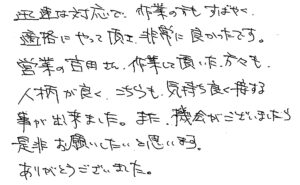 迅速な対応で、作業の方もすばやく、
適格にやって頂き、非常に良かったです。
営業の吉田さん、作業して頂いた方々も
人柄が良く、こちらも気持ち良く接する
事が出来ました。また、機会がございましたら
是非お願いしたいと思います。
ありがとうございました。